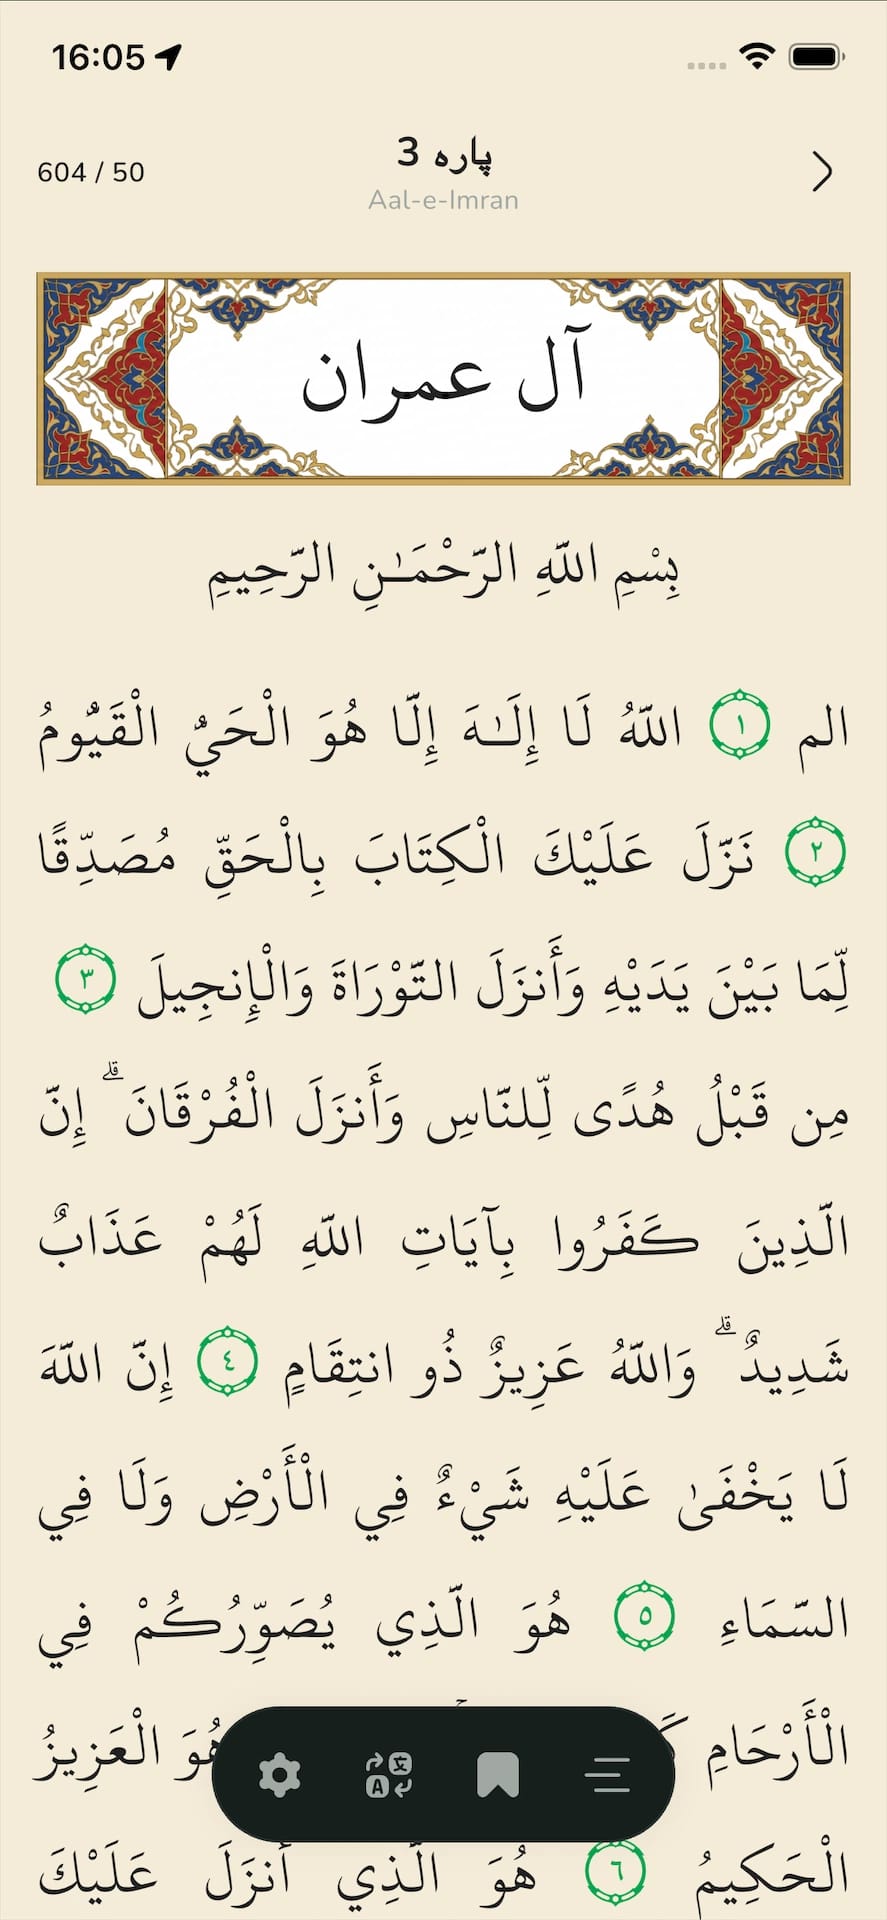 16:05
604 / 50
پاره 3
Aal-e-Imran
آل عمران
بِسْمِ اللَّهِ الرَّحْمَـٰنِ الرَّحِيمِ
الم ١ اللَّهُ لَا إِلَـٰهَ إِلَّا هُوَ الْحَيُّ الْقَيُّومُ
٢ نَزَّلَ عَلَيْكَ الْكِتَابَ بِالْحَقِّ مُصَدِّقًا
لِّمَا بَيْنَ يَدَيْهِ وَأَنزَلَ التَّوْرَاةَ وَالْإِنجِيلَ ٣
مِن قَبْلُ هُدًى لِّلنَّاسِ وَأَنزَلَ الْفُرْقَانَ ۗ إِنَّ
الَّذِينَ كَفَرُوا بِآيَاتِ اللَّهِ لَهُمْ عَذَابٌ
شَدِيدٌ ۗ وَاللَّهُ عَزِيزٌ ذُو انتِقَامٍ ٤ إِنَّ اللَّهَ
لَا يَخْفَىٰ عَلَيْهِ شَيْءٌ فِي الْأَرْضِ وَلَا فِي
السَّمَاءِ ٥ هُوَ الَّذِي يُصَوِّرُكُمْ فِي
الْأَرْحَامِ هُوَ الْعَزِيزُ
الْحَكِيمُ ٦ هُوَ الَّذِي أَنزَلَ عَلَيْكَ